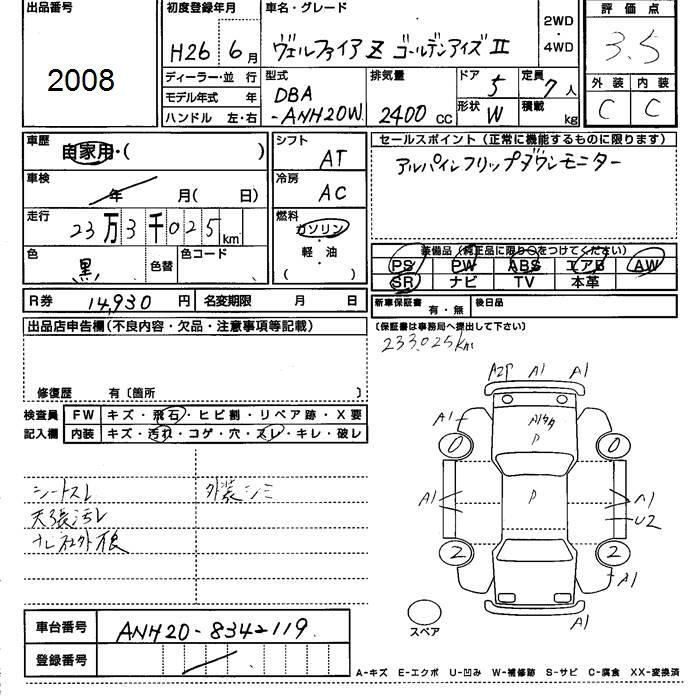 出品番号
2008
初度登録年月
H26 6月
車名・グレード
ヴェルファイア Z ゴールデンアイズ II
2WD
・
4WD
評価点
3.5
外装 内装
C C
ディーラー・並 行
モデル年式 年
ハンドル 左・右
型式
DBA
-ANH20W
排気量
2400 CC
ドア
5
定員
7人
形状
W
積載
kg
車歴
自家用・( )
車検
年 月( 日)
走行
23万3千025km
色
黒
色替
色コード
シフト
AT
冷房
AC
燃料
ガソリン
軽・油
( )
セールスポイント(正常に機能するものに限ります)
アルパインフリップダウンモニター
装備品(純正品に限り○をつけてください)
PS PW ABS エアB AW
SR ナビ TV 本革
R券 14,930円 名変期限 月 日
新車保証書 有・無 後日品
(保証書は事務局へ提出して下さい)
233,025km
出品店申告欄(不良内容・欠品・注意事項等記載)
修復歴 有〔箇所 〕
検査員
記入欄
FW キズ・飛石・ヒビ割・リペア跡・X要
内装 キズ・汚れ・コゲ・穴・スレ・キレ・破レ
シートスレ
天張汚レ
外装シミ
A2P A1 A1
A1
P
0 0
A1
P
A1
U2
2 2
A1
A1
スペア
車台番号 ANH20-8342119
登録番号
A-キズ E-エクボ U-凹み W-補修跡 S-サビ C-腐食 XX-変換済